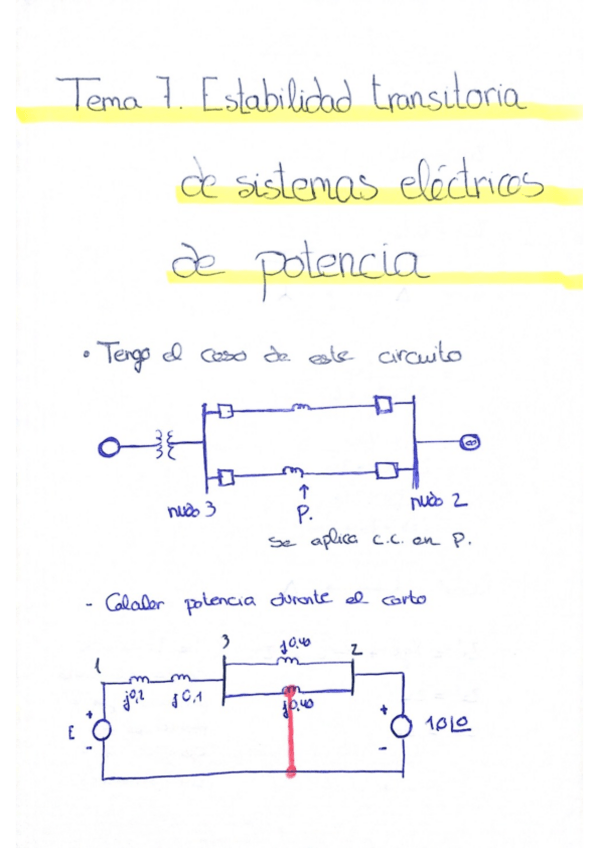 Tema 7. Estabilidad transitoria
de sistemas eléctricos
de potencia
• Tengo el caso de este circuito
∞
nudo 3
P.
nudo 2
Se aplica c.c. en P.
- Calcular potencia durante el corto
1
3
j0,40
2
j0,2
j0,1
j0,40
E
+
-
+
-
1,0|0